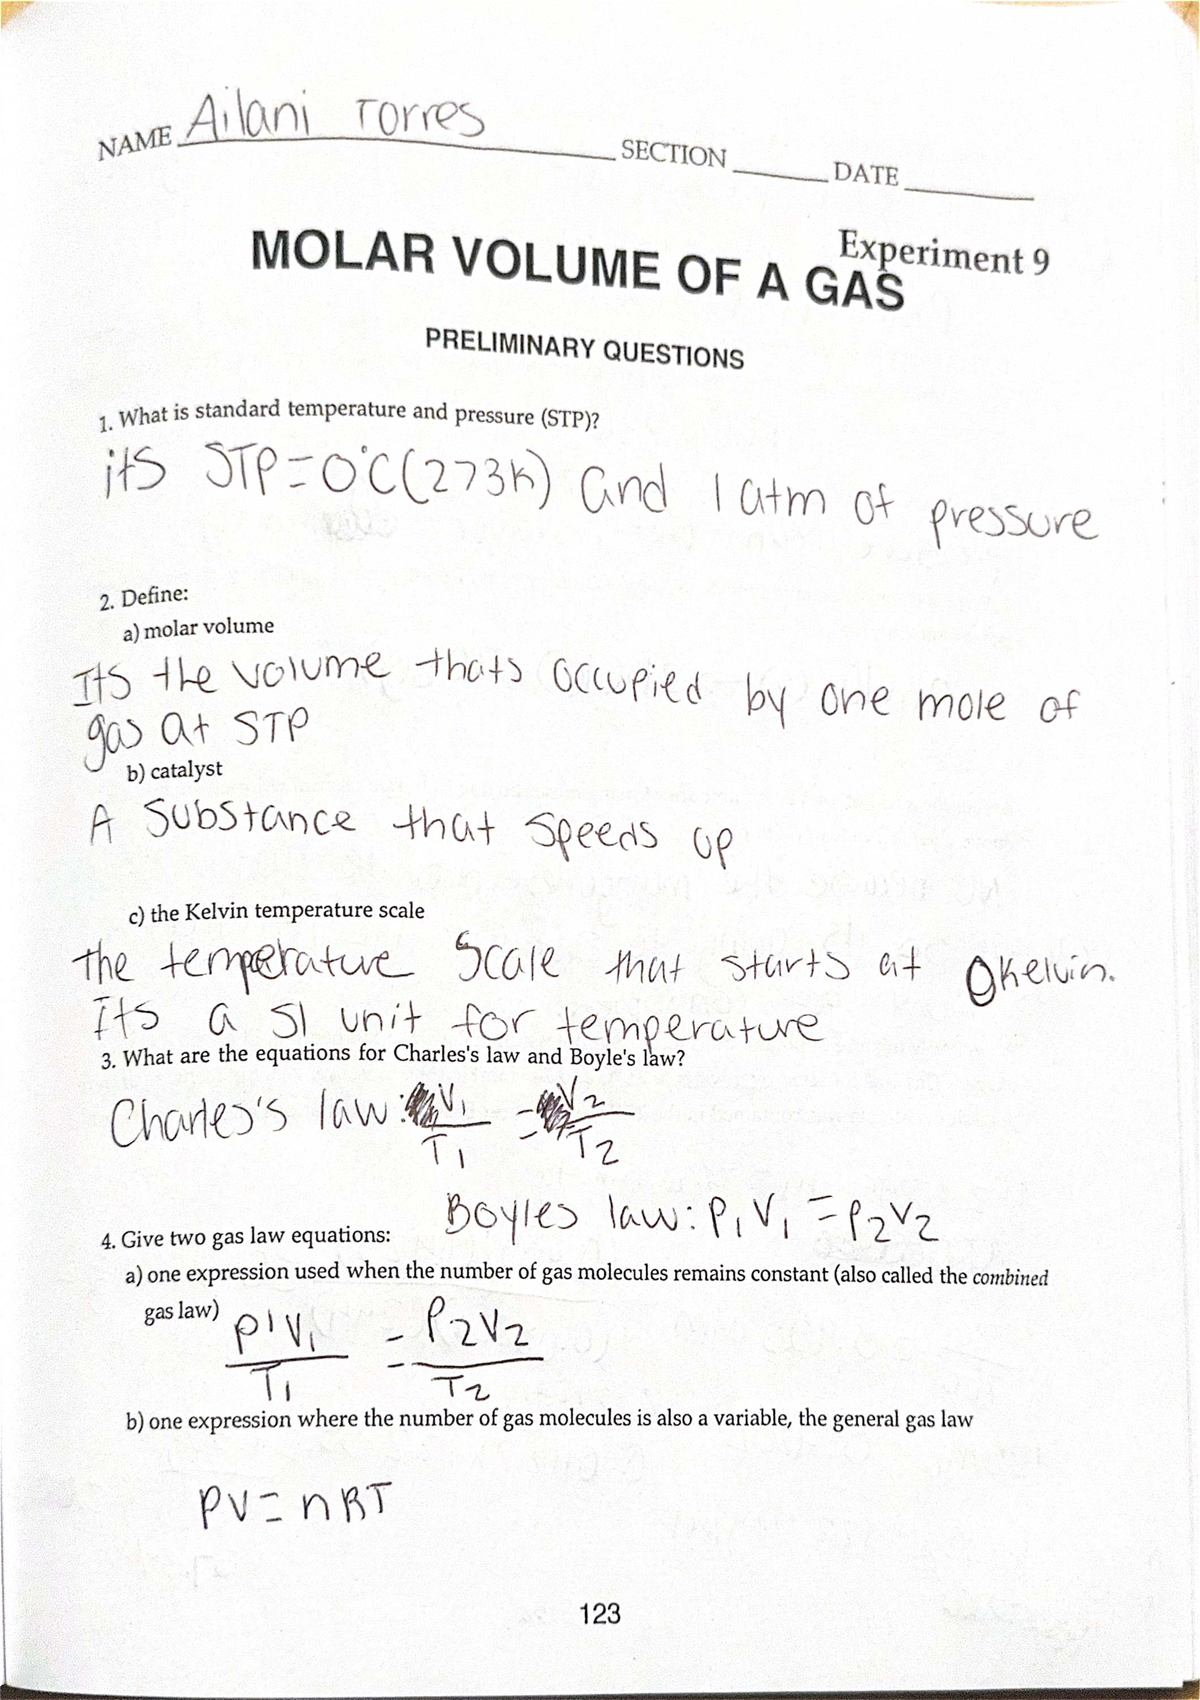 NAME Ailani Torres SECTION DATE
Experiment 9
MOLAR VOLUME OF A GAS
PRELIMINARY QUESTIONS
1. What is standard temperature and pressure (STP)?
its STP=0°C(273K) and 1 atm of pressure
2. Define:
a) molar volume
Its the volume thats occupied by one mole of
gas at STP
b) catalyst
A substance that speeds up
c) the Kelvin temperature scale
the temperature scale that starts at 0kelvin.
Its a SI unit for temperature
3. What are the equations for Charles's law and Boyle's law?
Charles's law: V₁/T₁ = V₂/T₂
Boyles law: P₁V₁ = P₂V₂
4. Give two gas law equations:
a) one expression used when the number of gas molecules remains constant (also called the combined
gas law)
P'V₁/T₁ = P₂V₂/T₂
b) one expression where the number of gas molecules is also a variable, the general gas law
PV=nRT
123